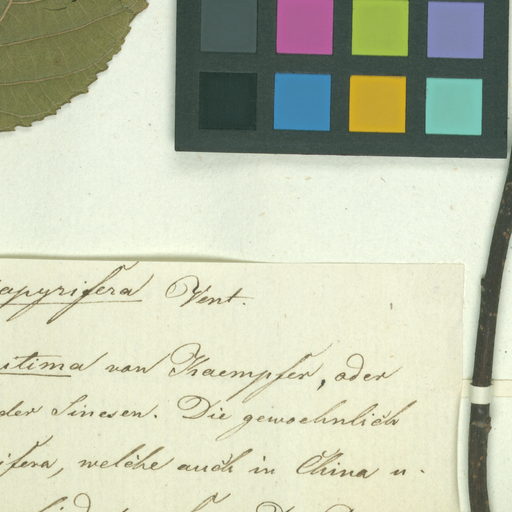 apyrifera Vent.
itima von Kaempfer, oder
der Sinesen. Die gewoehnlich
ifera, welche auch in China u.